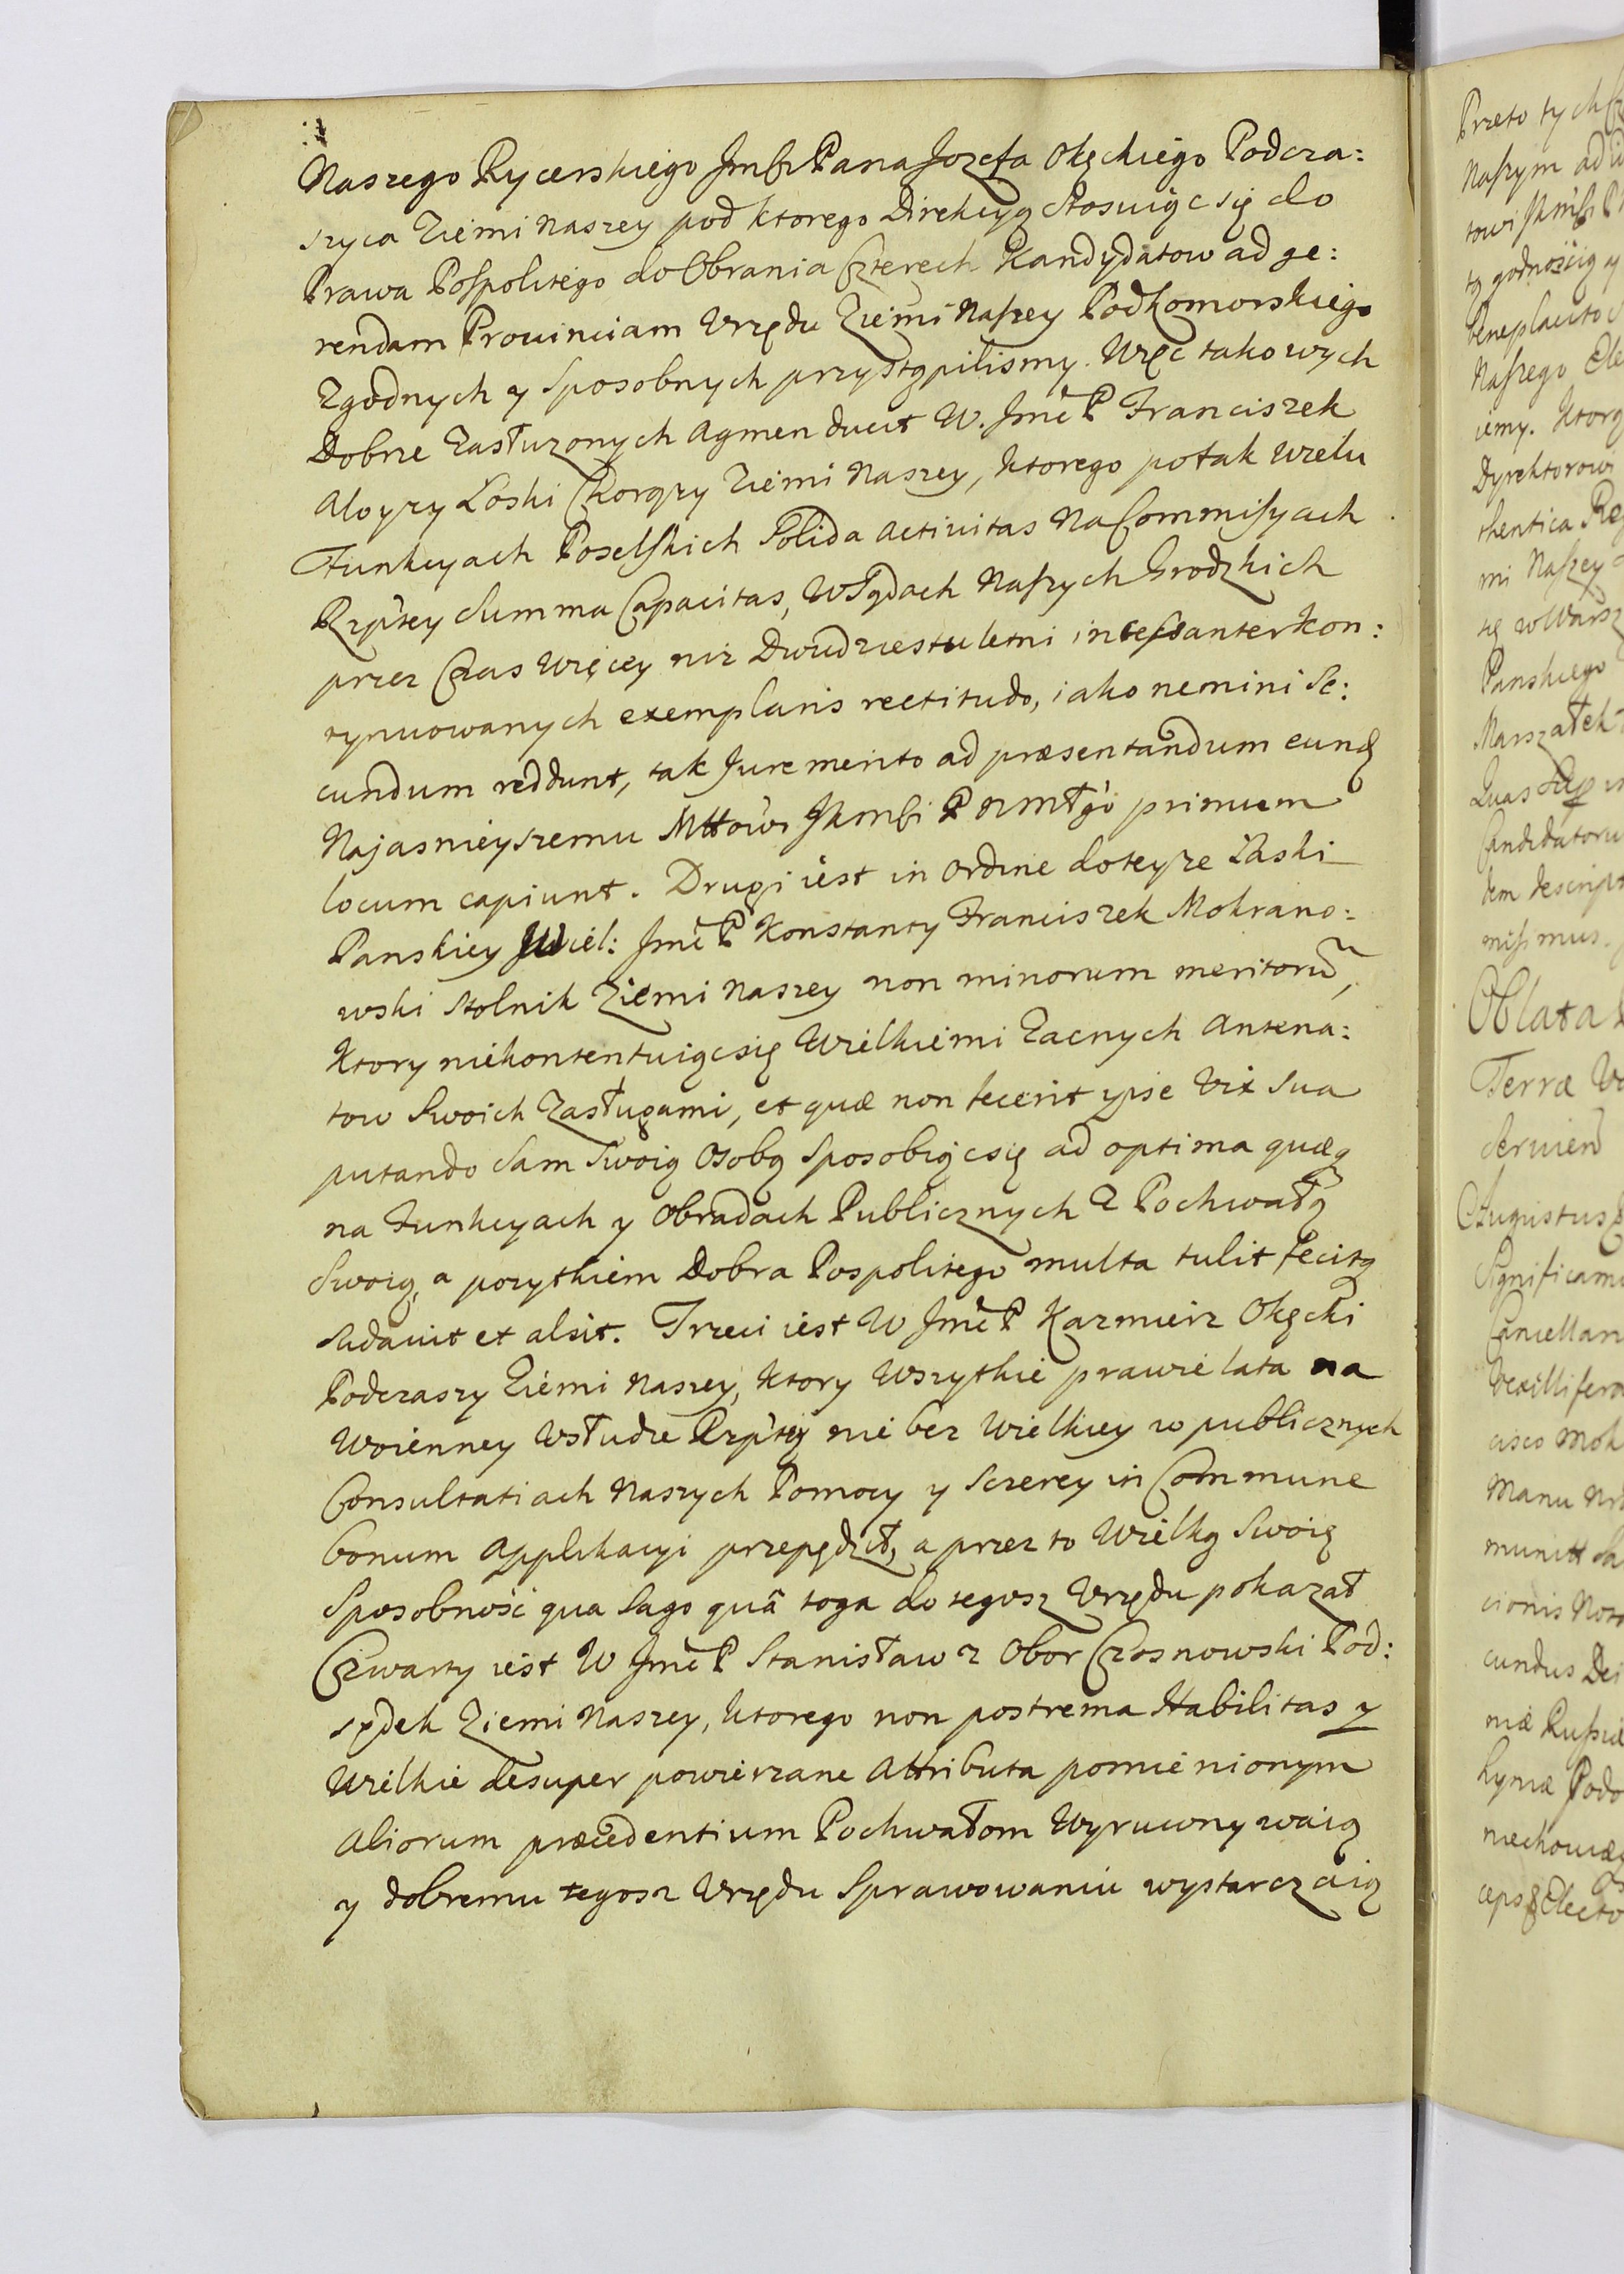 Naszego Rycerskiego Jmści Pana Jozefa Okęckiego Podcza:
szyca Ziemi Naszey pod ktorego Direkcyą Stosuiąc się do
Prawa Pospolitego do Obrania Czterech Kandydatow ad ge:
rendam Prouinciam Vrzędu Ziemi Naszey Podkomorskiego
Zgodnych y Sposobnych przystąpilismy. Więc takowych
Dobrze Zasłuzonych Agmen ducit W. Jmć P Franciszek
Aloyzy Łoski Chorązy Ziemi Naszey, ktorego po tak wielu
Funkcyach Poselskich Solida Activitas Na Commissyach
Rzptey Summa Capacitas, W Sądach Naszych Grodzkich
przez Czas więcey niz Dwudziestuletni incessanter kon:
tynuowanych exemplaris rectitudo, iako nemini Se:
cundum reddunt, tak Jure merito ad præsentandum eund
Najasnieyszemu Mttowi JKmści P N Młgo primum
locum capiunt. Drugi iest in Ordine do teyze Łaski
Panskiey Wiel: Jmć P Konstanty Franciszek Mokrano:
wski Stolnik Ziemi Naszey non minorum meritorũ,
Ktory niekontentuiąc się Wielkiemi Zacnych Antena:
tow Swoich Zasługami, et quæ non fecerit ipse Vix sua
putando Sam Swoią Osobą Sposobiąc się ad optima quæq
na Funkcyach y Obradach Publicznych Z Pochwałą
Swoią, a pozytkiem Dobra Pospolitego multa tulit fecitq
Sudavit et alsit. Trzeci iest W Jmć P Kazmierz Okęcki
Podczaszy Ziemi Naszey, ktory Wszytkie prawie lata na
Woienney Wsłudze Rzptey nie bez Wielkiey w publicznych
Consultatiach Naszych Pomocy y Szczerey in Commune
bonum Applikacyi przepędził, a przez to Wielką Swoię
Sposobność qua Sago quâ toga do tegosz Vrzędu pokazał
Czwarty iest W Jmć P Stanisław z Obor Czosnowski Pod:
sędek Ziemi Naszey, ktorego non postrema Habilitas y
Wielkie desuper powierzane Attributa pomienionym
Aliorum præcedentium Pochwałom Wyruwnywaią
y dobremu tegosz Vrzędu Sprawowaniu wystarczaią
Przeto tych
Naszym
Naszego
iemy. Ktorą
Dyrektorowi
thentica
mi Naszey
Panskiego
Marszałek
Quas
dem
missimus.
Oblata
Terræ
Seruien
Augustus
Manu
cionis
cundus Dei
niæ Russiæ